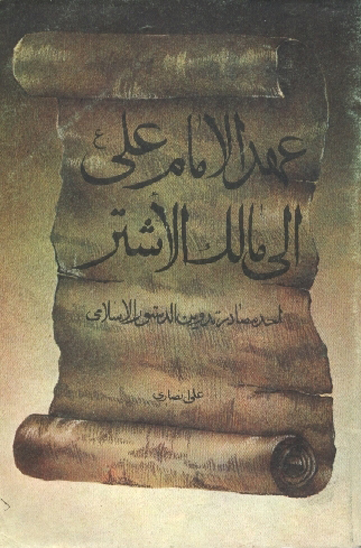 عهد الامام علي ع
الى مالك الأشتر
احد مصادر تدوين الدستور الاسلامي
علي انصاري